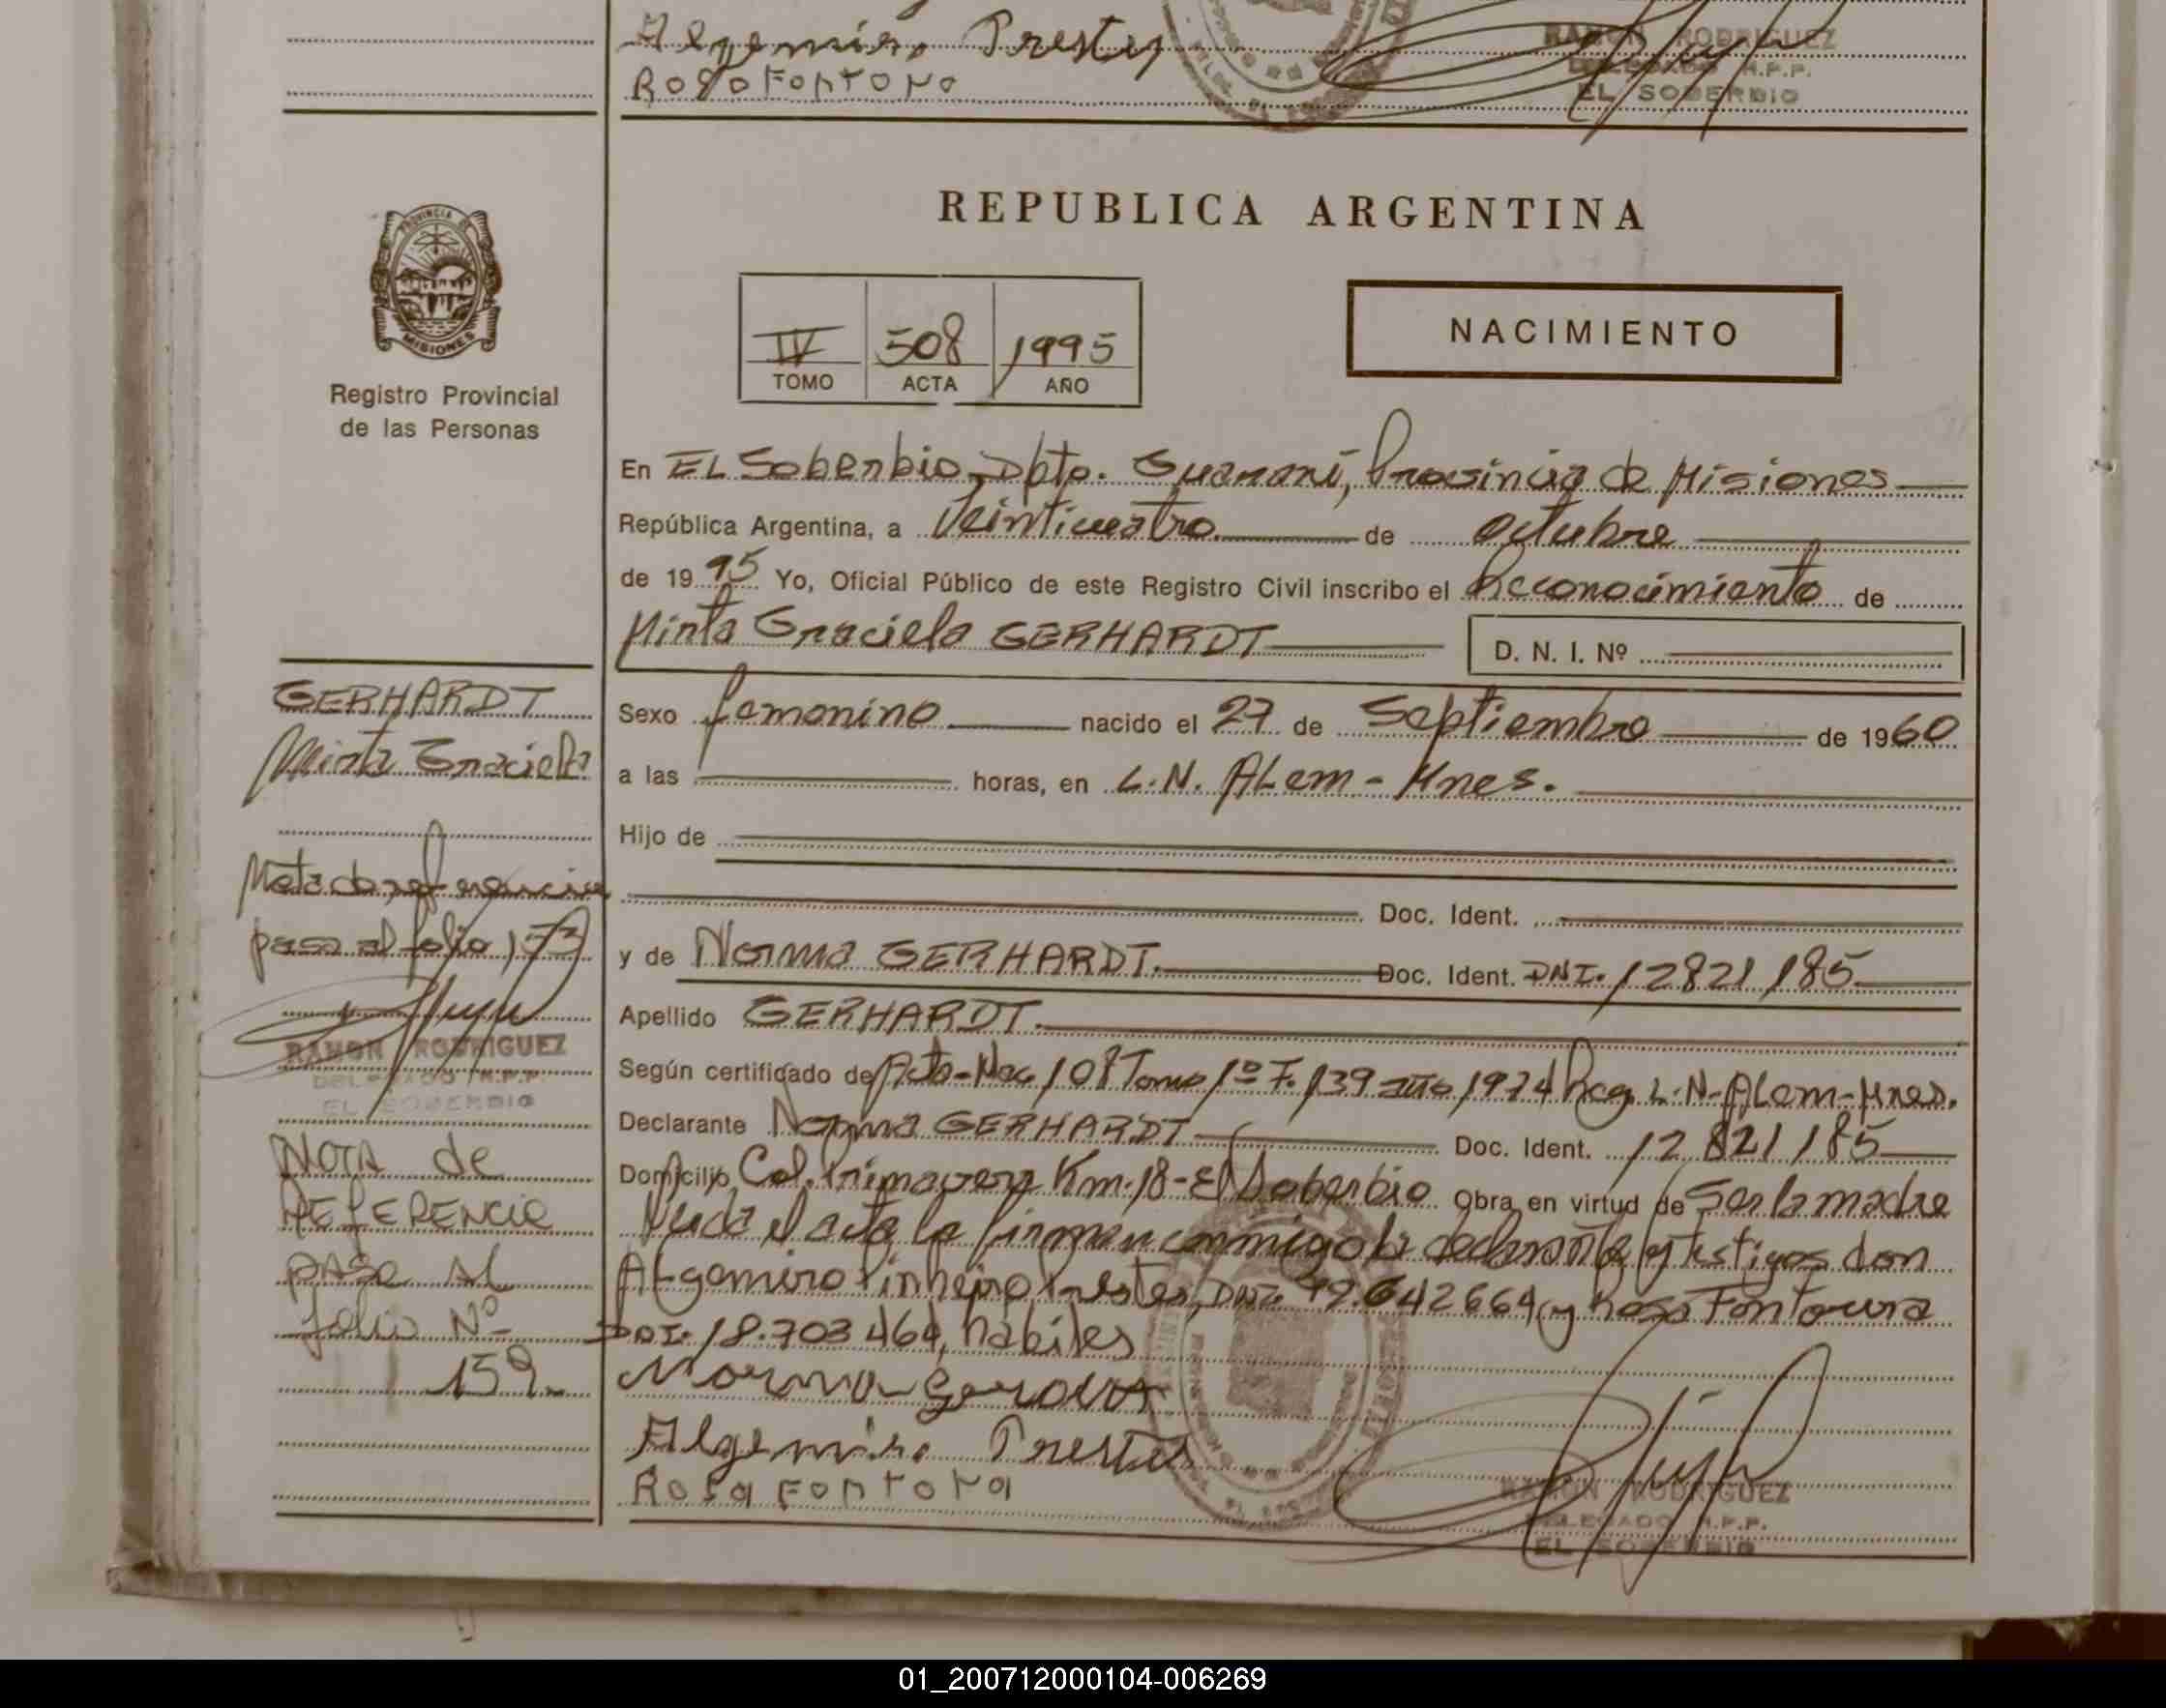 Algemiro Prestes
Rosa Fontora
RAMON RODRIGUEZ
DELEGADO R.P.P.
EL SOBERBIO
REPUBLICA ARGENTINA
PROVINCIA DE
MISIONES
Registro Provincial
de las Personas
IV 508 1995
TOMO ACTA AÑO
NACIMIENTO
En EL Soberbio, Dpto. Guaraní, Provincia de Misiones
República Argentina, a Veinticuatro de octubre
de 1995 Yo, Oficial Público de este Registro Civil inscribo el Reconocimiento de
Mirta Graciela GERHARDT D. N. I. Nº
GERHARDT
Mirta Graciela
Sexo femenino nacido el 27 de Septiembre de 1960
a las horas, en L.N. ALem - Mnes.
Hijo de
Doc. Ident.
y de Norma GERHARDT. Doc. Ident. DNI. 12821185
Apellido GERHARDT.
Según certificado de Acta-Nac 108 Tomo 1º F. 139 año 1974 Reg. L.N-ALem-Mnes.
Declarante Norma GERHARDT Doc. Ident. 12 821 185
Domicilio Col. Primavera Km. 18 - El Soberbio Obra en virtud de Ser la madre
Leida el acta la firman conmigo la declarante y testigos don
Algemiro Pinheiro Prestes, DNI. 92.642664 y Rosa Fontoura
DNI. 18.703 464, habiles
Nota de referencia
pasa al folio
RAMON RODRIGUEZ
DELEGADO R.P.P.
EL SOBERBIO
NOTA de
REFERENCIA
PASA AL
folio Nº
159.
Norma Gerardt
Algemiro Prestes
Rosa Fontora
RAMON RODRIGUEZ
DELEGADO R.P.P.
EL SOBERBIO
01_200712000104-006269